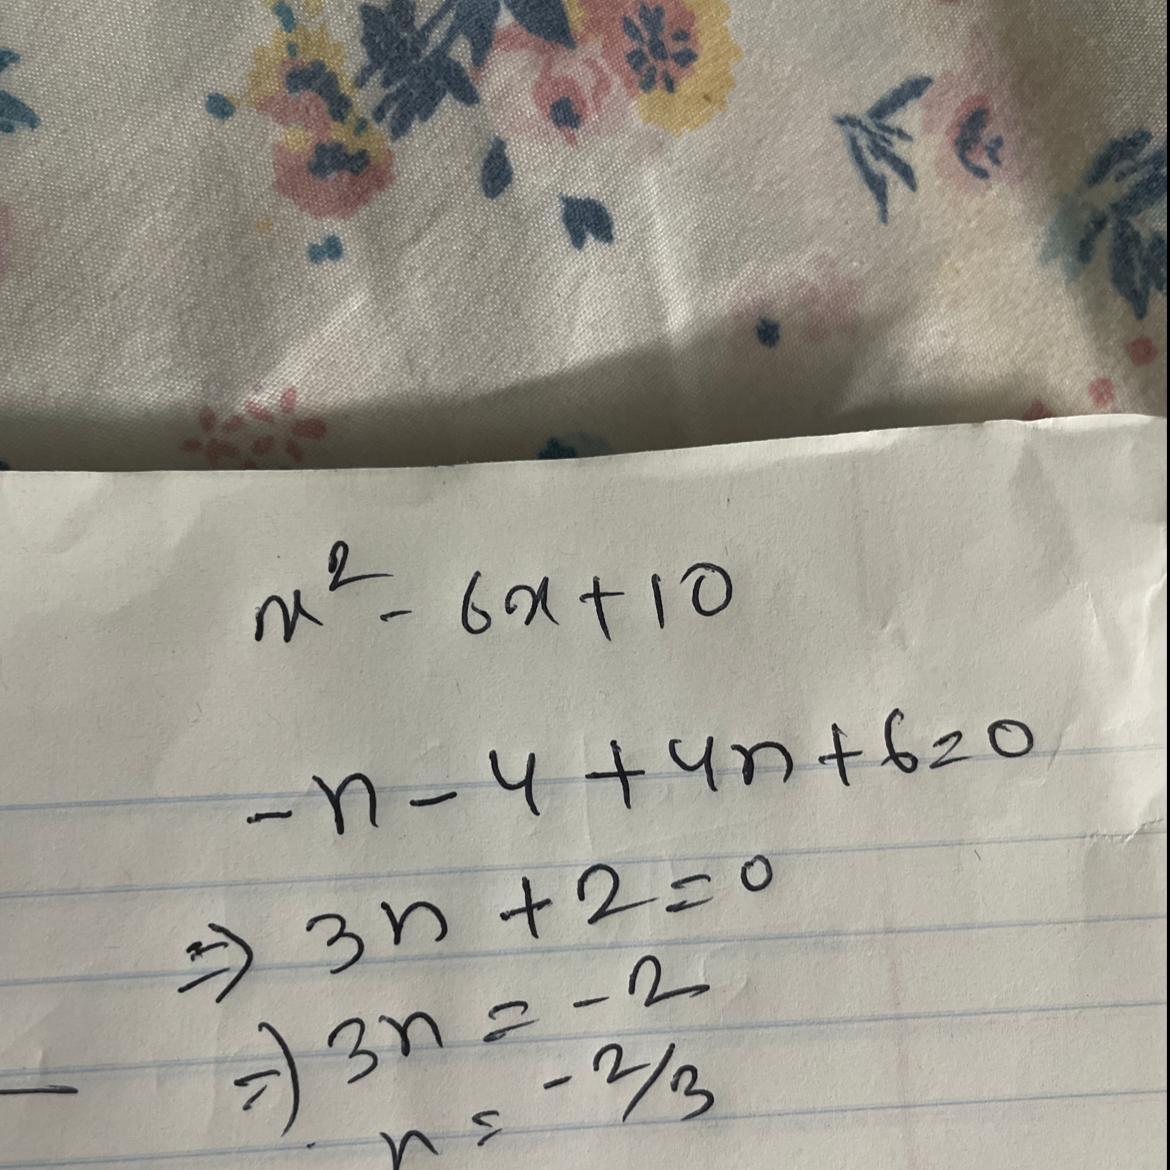 x² - 6x + 10
-n - 4 + 4n + 6 = 0
⇒ 3n + 2 = 0
⇒ 3n = -2
n = -2/3